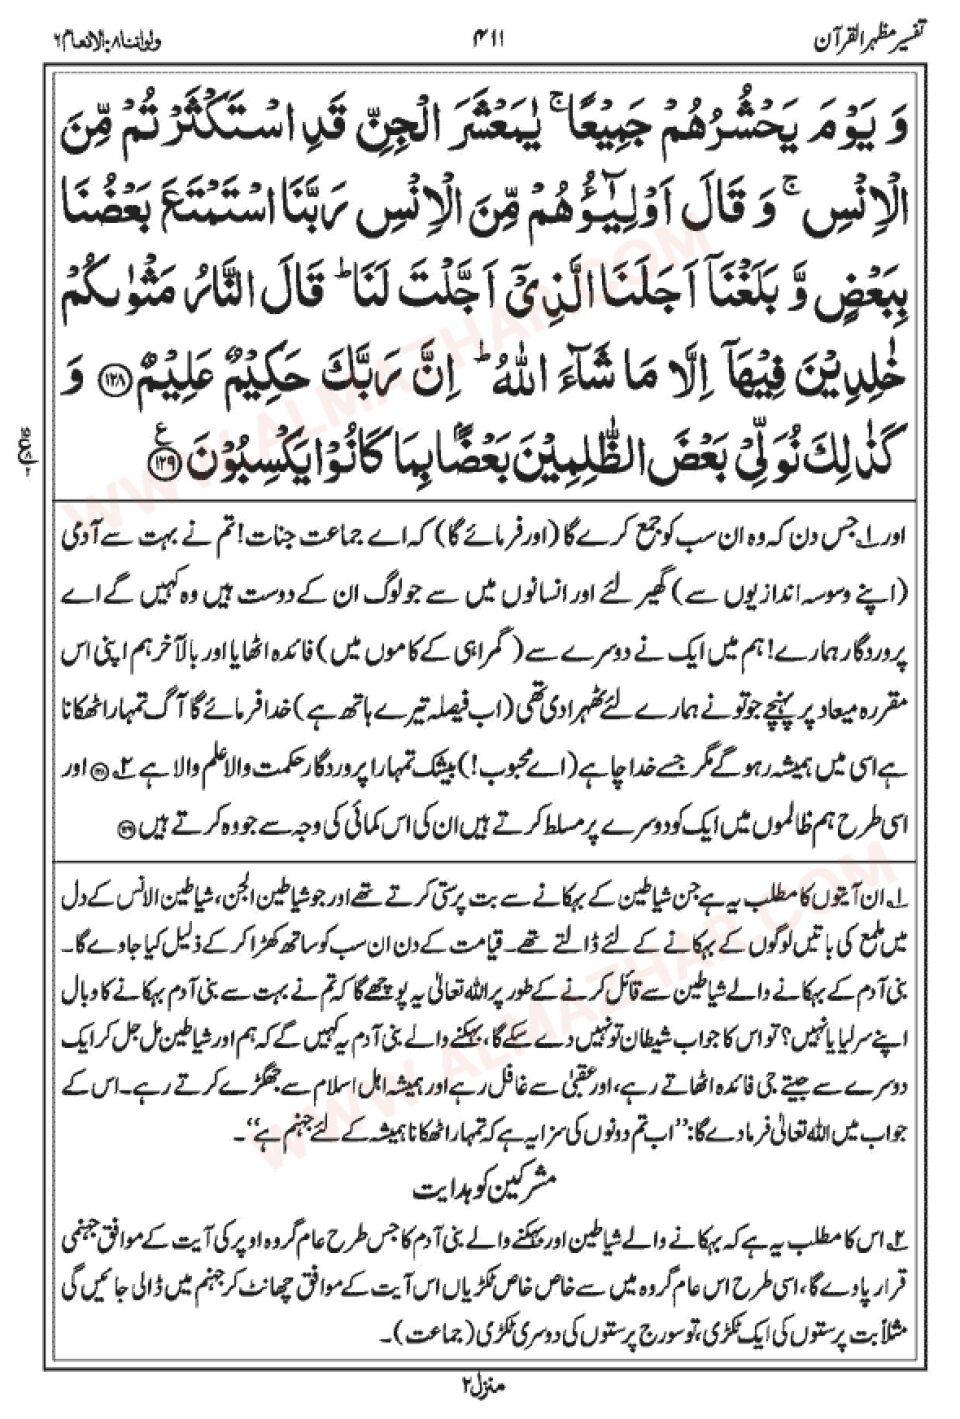 تفسیر مظہر القرآن
۴۱۱
ولو اننا ۸: الانعام ۶
وَ يَوْمَ يَحْشُرُهُمْ جَمِيْعًا ۚ يٰمَعْشَرَ الْجِنِّ قَدِ اسْتَكْثَرْتُمْ مِّنَ
الْاِنْسِ ۚ وَ قَالَ اَوْلِيٰٓؤُهُمْ مِّنَ الْاِنْسِ رَبَّنَا اسْتَمْتَعَ بَعْضُنَا
بِبَعْضٍ وَّ بَلَغْنَآ اَجَلَنَا الَّذِيْٓ اَجَّلْتَ لَنَا ؕ قَالَ النَّارُ مَثْوٰىكُمْ
خٰلِدِيْنَ فِيْهَآ اِلَّا مَا شَآءَ اللّٰهُ ؕ اِنَّ رَبَّكَ حَكِيْمٌ عَلِيْمٌ ﴿۱۲۸﴾ وَ
كَذٰلِكَ نُوَلِّيْ بَعْضَ الظّٰلِمِيْنَ بَعْضًۢا بِمَا كَانُوْا يَكْسِبُوْنَ ﴿۱۲۹﴾ ع
اور ۱؎ جس دن کہ وہ ان سب کو جمع کرے گا (اور فرمائے گا) کہ اے جماعت جنات! تم نے بہت سے آدمی
(اپنے وسوسہ اندازیوں سے) گھیر لئے اور انسانوں میں سے جو لوگ ان کے دوست ہیں وہ کہیں گے اے
پروردگار ہمارے! ہم میں ایک نے دوسرے سے (گمراہی کے کاموں میں) فائدہ اٹھایا اور بالآخر ہم اپنی اس
مقررہ میعاد پر پہنچے جو تو نے ہمارے لئے ٹھہرا دی تھی (اب فیصلہ تیرے ہاتھ ہے) خدا فرمائے گا آگ تمہارا ٹھکانا
ہے اسی میں ہمیشہ رہو گے مگر جسے خدا چاہے (اے محبوب!) بیشک تمہارا پروردگار حکمت والا علم والا ہے ۲؎ ﴿۱۲۸﴾ اور
اسی طرح ہم ظالموں میں ایک کو دوسرے پر مسلط کرتے ہیں ان کی اس کمائی کی وجہ سے جو وہ کرتے ہیں ﴿۱۲۹﴾
۱؎ ان آیتوں کا مطلب یہ ہے جن شیاطین کے بہکانے سے بت پرستی کرتے تھے اور جو شیاطین الجن، شیاطین الانس کے دل
میں ملمع کی باتیں لوگوں کے بہکانے کے لئے ڈالتے تھے۔ قیامت کے دن ان سب کو ساتھ کھڑا کر کے ذلیل کیا جاوے گا۔
بنی آدم کے بہکانے والے شیاطین سے قائل کرنے کے طور پر اللہ تعالیٰ یہ پوچھے گا کہ تم نے بہت سے بنی آدم بہکانے کا وبال
اپنے سر لیا یا نہیں؟ تو اس کا جواب شیطان تو نہیں دے سکے گا، بہکنے والے بنی آدم یہ کہیں گے کہ ہم اور شیاطین مل جل کر ایک
دوسرے سے جیتے جی فائدہ اٹھاتے رہے، اور عقبیٰ سے غافل رہے اور ہمیشہ اہل اسلام سے جھگڑے کرتے رہے۔ اس کے
جواب میں اللہ تعالیٰ فرما دے گا: ”اب تم دونوں کی سزا یہ ہے کہ تمہارا ٹھکانا ہمیشہ کے لئے جہنم ہے“۔
مشرکین کو ہدایت
۲؎ اس کا مطلب یہ ہے کہ بہکانے والے شیاطین اور بہکنے والے بنی آدم کا جس طرح عام گروہ اوپر کی آیت کے موافق جہنمی
قرار پاوے گا، اسی طرح اس عام گروہ میں سے خاص خاص ٹکڑیاں اس آیت کے موافق چھانٹ کر جہنم میں ڈالی جائیں گی
مثلاً بت پرستوں کی ایک ٹکڑی، تو سورج پرستوں کی دوسری ٹکڑی (جماعت)۔
منزل ۲
WWW.ALMAZHAR.COM
WWW.ALMAZHAR.COM